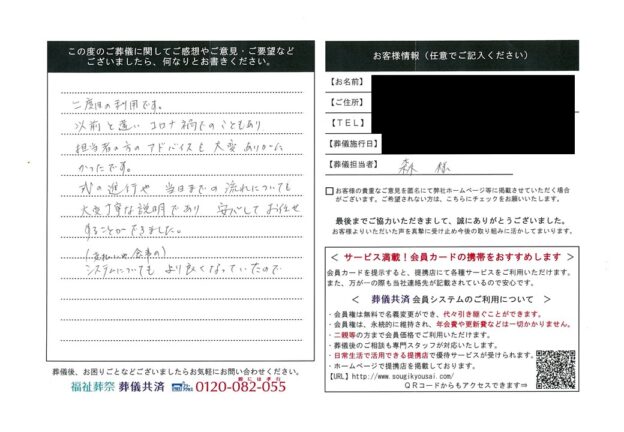 この度のご葬儀に関してご感想やご意見・ご要望など
ございましたら、何なりとお書きください。
二度目の利用です。
以前と違い コロナ禍下のこともあり
担当者の方のアドバイスも 大変ありがた
かったです。
式の進行や 当日までの 流れについても
大変丁寧な説明であり 安心して お任せ
することができました。
システムについても より良くなっていたので
葬儀後、お困りごとなどございましたらお気軽にお問い合わせください。
福祉葬祭 葬儀共済 0120-082-055
お客様情報（任意でご記入ください）
【お名前】
【ご住所】
【ＴＥＬ】
【葬儀施行日】
【葬儀担当者】 森 様
お客様の貴重なご意見を匿名にて弊社ホームページ等に掲載させていただく場合
がございます。ご希望されない方は、こちらにチェックをお願いいたします。
最後までご協力いただきまして、誠にありがとうございました。
お客様よりいただいた声を真摯に受け止め今後の取り組みに活かしてまいります。
＜ サービス満載！会員カードの携帯をおすすめします ＞
会員カードを提示すると、提携店にて各種サービスをご利用いただけます。
また、万が一の際も当社連絡先が記載されているので安心です。
＜ 葬儀共済 会員システムのご利用について ＞
・会員権は無料で名義変更ができ、代々引き継ぐことができます。
・会員権は、永続的に維持され、年会費や更新費などは一切かかりません。
・二親等の方まで会員価格でご利用いただけます。
・葬儀後のご相談も専門スタッフが対応いたします。
・日常生活で活用できる提携店で優待サービスが受けられます。
・ホームページで提携店を掲載しております。
【URL】http://www.sougikyousai.com/
ＱＲコードからもアクセスできます⇒